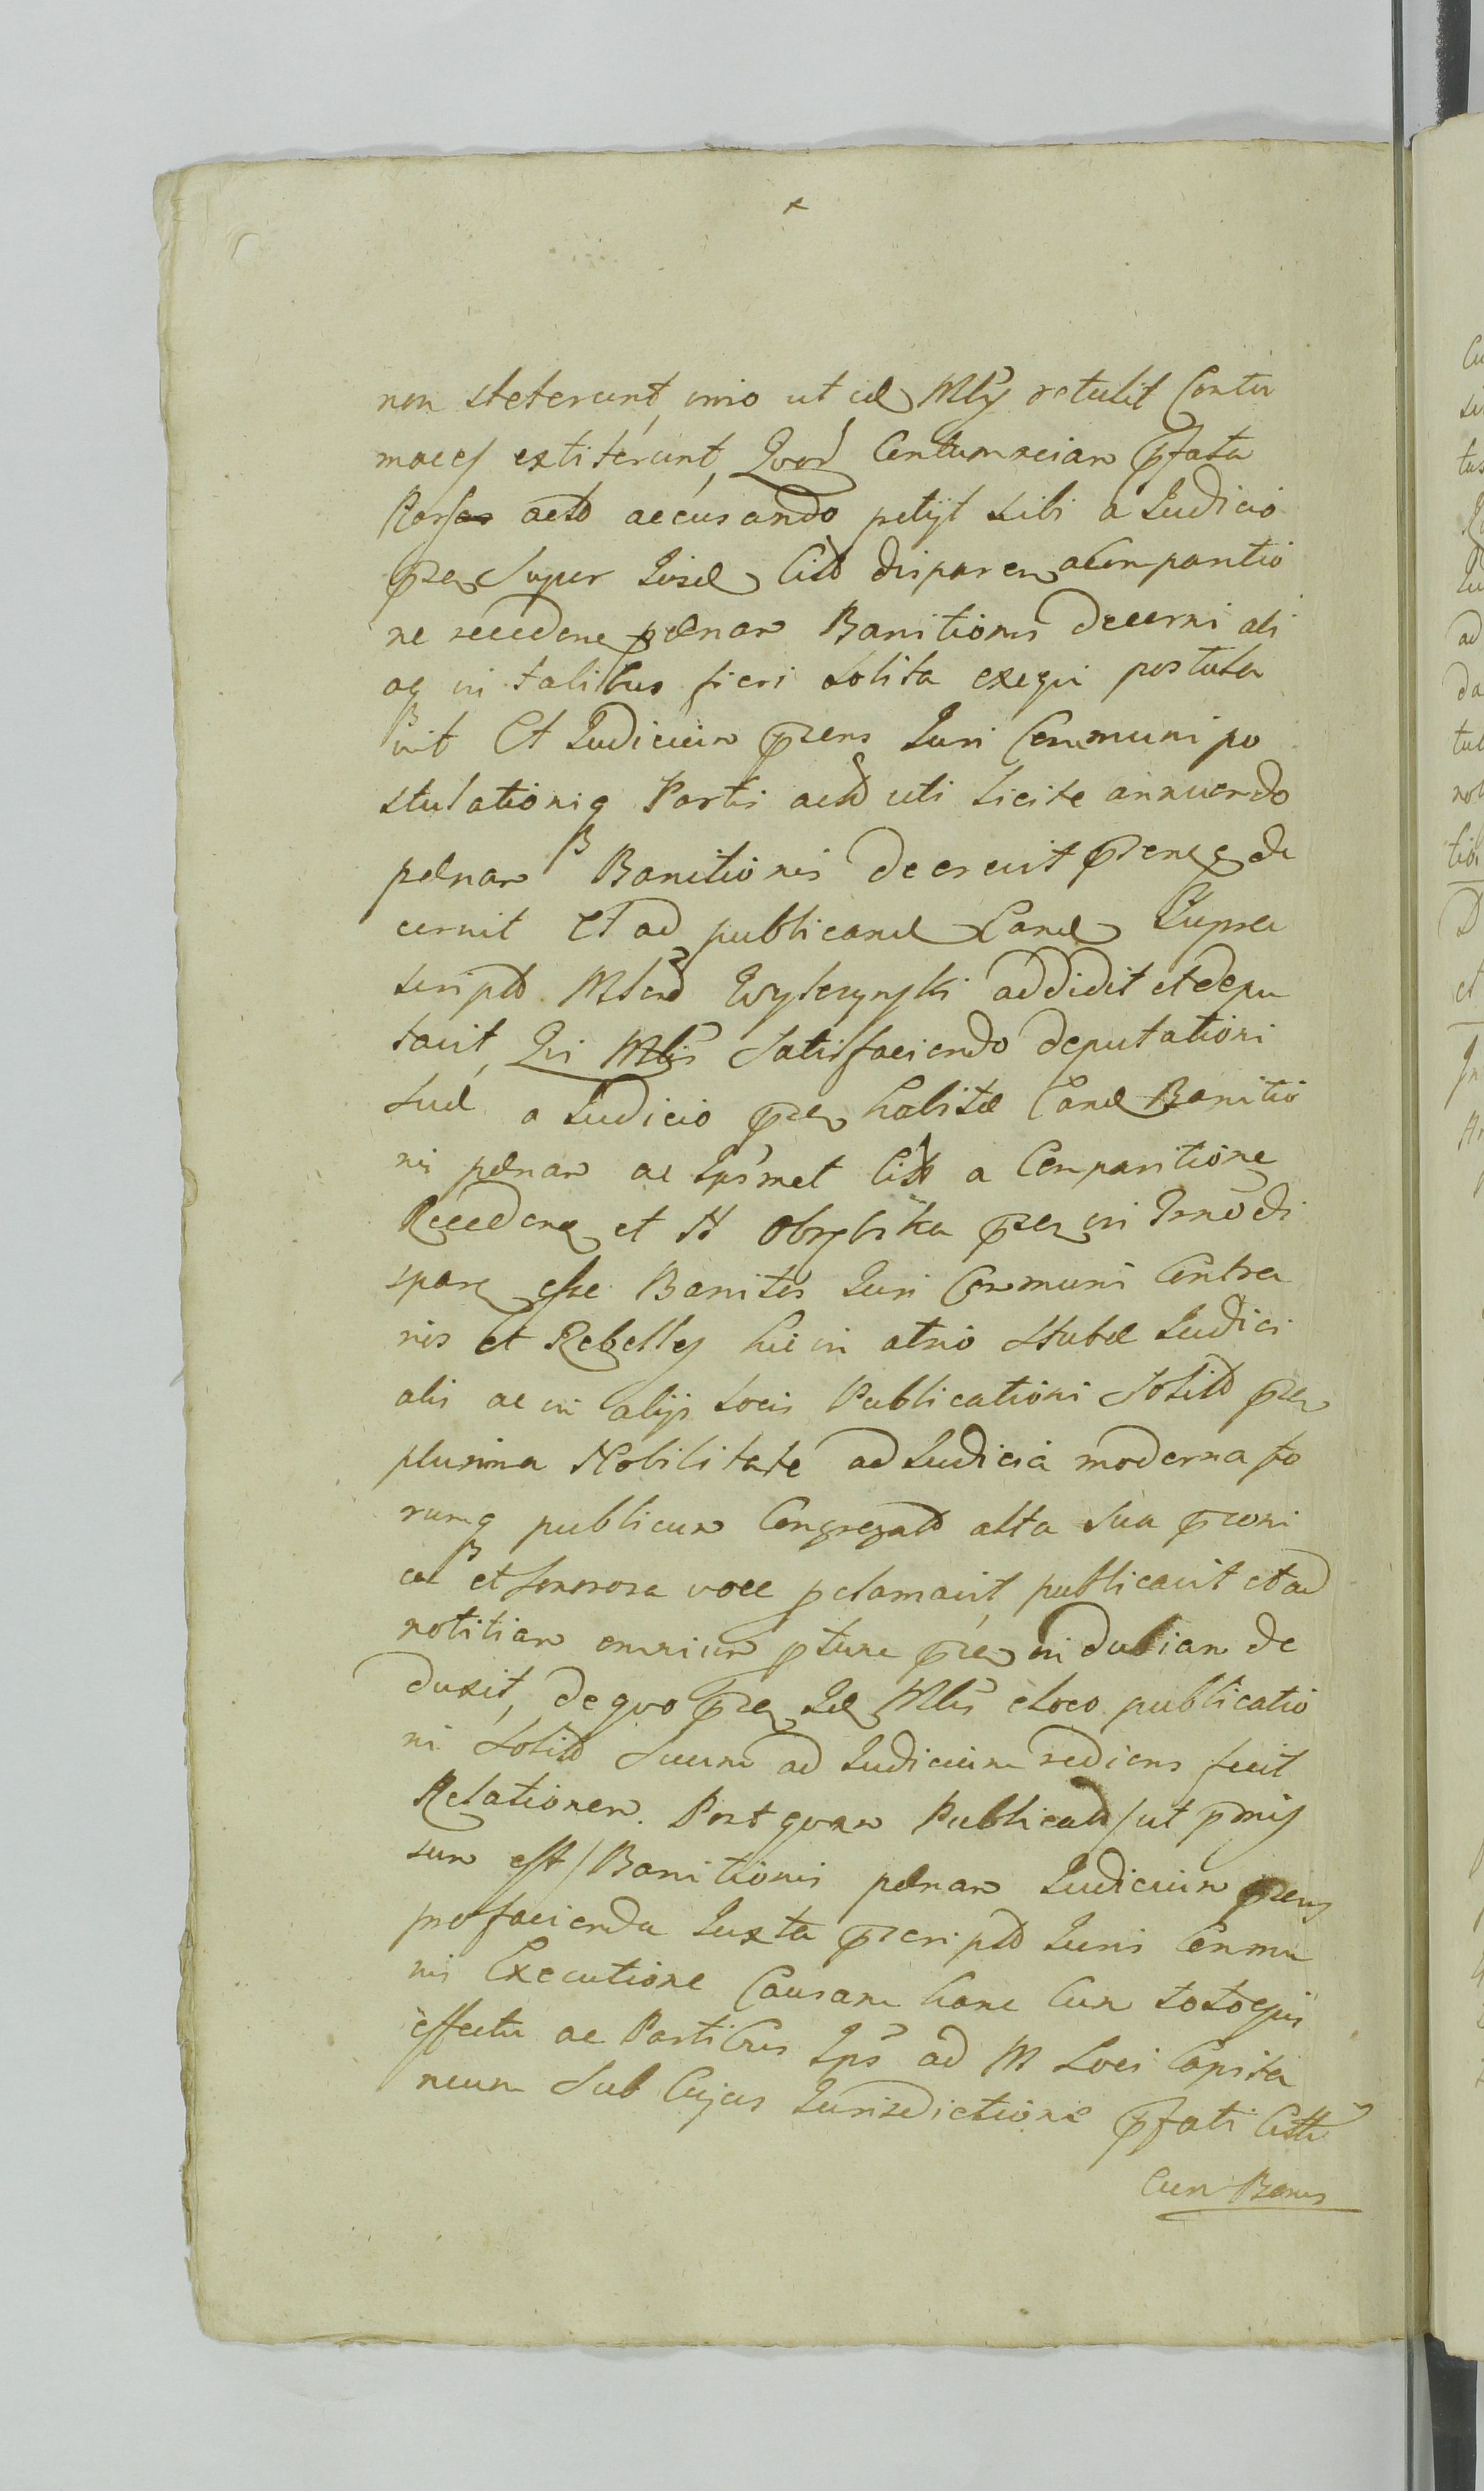 non steterunt, imo ut id Mlis retulit Contu
maces extiterunt, Quor Contumaciam pfata
Pars acto accusando petijt sibi a Judicio
pre Super Iisd Citt disparen a Comparitio
ne recedene pænam Banitionis decerni ali
aq in talibus fieri solita exequi postula
vit Et Judicium prens Juri Communi po
stulationiq Partis actt uti licite annuendo
pænam Banitionis decrevit prenq de
cernit Et ad publicand Eand Supra
script Mterd Wylezynski addidit et depu
tavit, Qui Mlis Satisfaciendo deputationi
suæ a Judicio pre habitæ Eand Banitio
nis pænam ac Ipsmet Citt a Comparitione
Recedene et N Obrybska pre in Trno di
spare esse Banitos Juri Communi Contra
rios et Rebelles hic in atrio Stubæ Judici
alis ac in alijs Locis Publicationi Solitt pre
plurima Nobilitate ad Judicia moderna fo
rumq publicum Congregatt alta sua præni
ca et sonorosa voce pclamavit, publicavit et ad
notitiam omnium ptunc pre in dubiam de
duxit, de quo pre Id Mlis e Loco publicatio
ni Solitt suum ad Judicium rediens fecit
Relationem. Post quam Publicatt /ut pmis
sum est/ Banitionis pænam Judicium prens
pro facienda Juxta prescript Juris Commu
nis Executione Causam hanc Cum toto ejus
effectu ac Partibus Ips ad M Loci Capita
neum Sub Cujus Jurisdictione pfati Citti
Cum Bonis